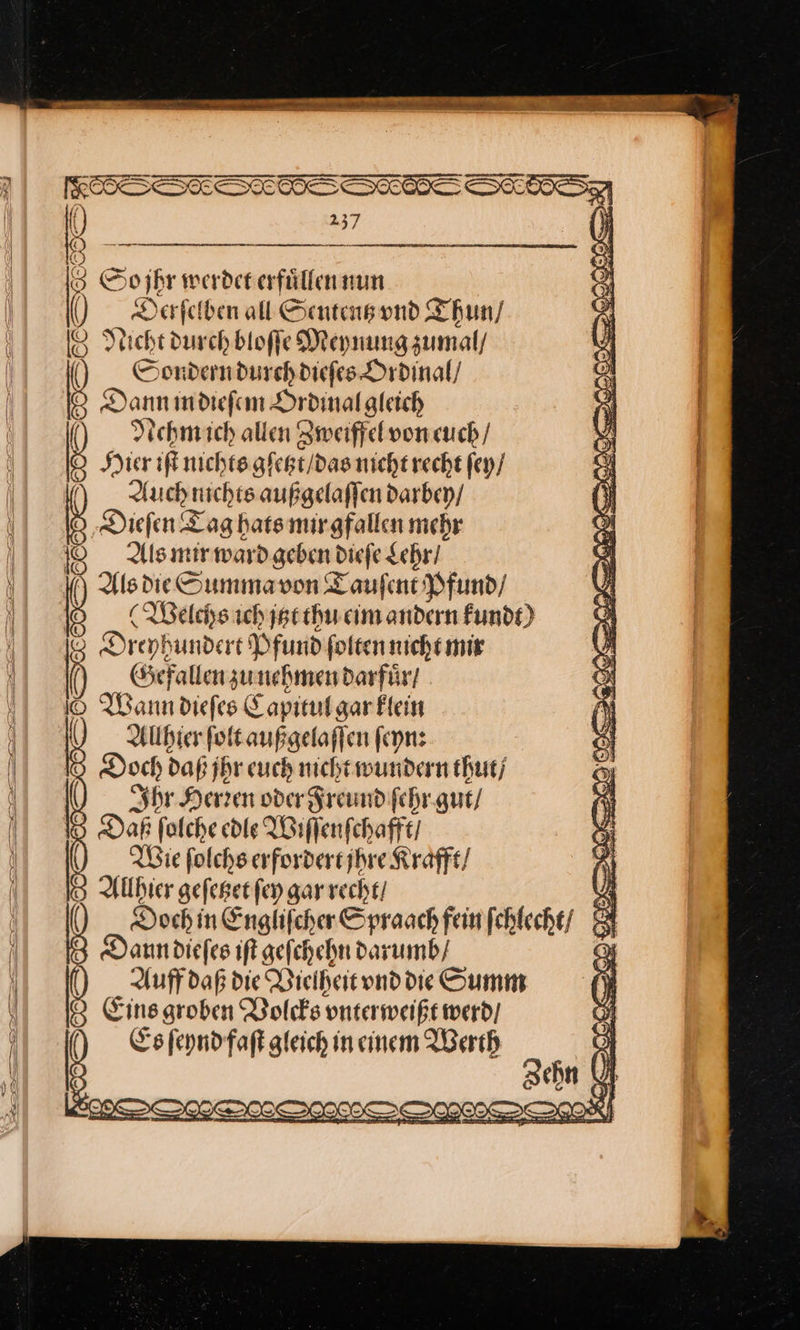 237
So jhr werdet erfuͤllen nun
Derſelben all Sententz vnd Thun/
Nicht durch bloſſe Meynung zumal/
Sondern durch dieſes Ordinal/
Dann in dieſem Ordinal gleich
Nehm ich allen Zweiffel von euch/
Hier iſt nichts gſetzt/das nicht recht ſey/
Auch nichts außgelaſſen darbey/
Dieſen Tag hats mir gfallen mehr
Als mir ward geben dieſe Lehr/
Als die Summa von Tauſent Pfund/
(Welchs ich jtzt thu eim andern kundt)
Dreyhundert Pfund ſolten nicht mir
Gefallen zu nehmen darfuͤr/
Wann dieſes Capitul gar klein
Allhier ſolt außgelaſſen ſeyn:
Doch daß jhr euch nicht wundern thut/
Ihr Herꝛen oder Freund ſehr gut/
Daß ſolche edle Wiſſenſchafft/
Wie ſolchs erfordert jhre Krafft/
Allhier geſetzet ſey gar recht/
Doch in Engliſcher Spraach fein ſchlecht/
Dann dieſes iſt geſchehn darumb/
Auff daß die Vielheit vnd die Summ
Eins groben Volcks vnterweißt werd/
Es ſeynd faſt gleich in einem Werth
Zehn